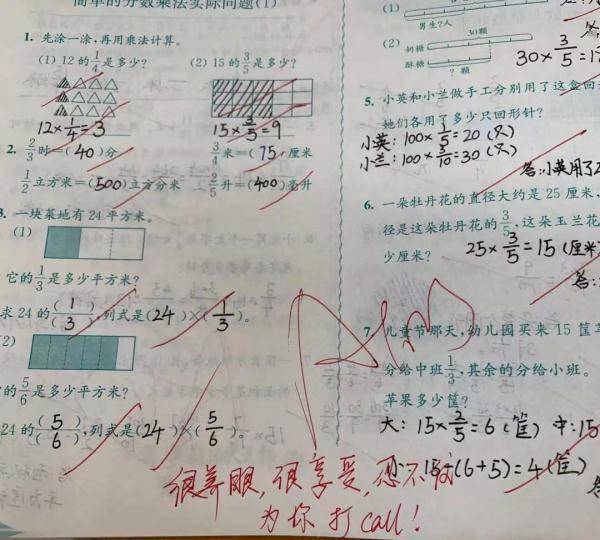 简单的分数乘法实际问题(1)
1. 先涂一涂,再用乘法计算。
(1) 12的1/4是多少? (2) 15的3/5是多少?
12×1/4=3 15×3/5=9
2. 2/3时=(40)分 3/4米=(75)厘米
1/2立方米=(500)立方分米 2/5升=(400)毫升
3. 一块菜地有24平方米。
(1)
它的1/3是多少平方米?
求24的(1/3),列式是(24)×(1/3)。
(2)
的5/6是多少平方米?
24的(5/6),列式是(24)×(5/6)。
(1)
男生?人
(2) 奶糖 30颗
酥糖
? 颗
30×3/5=1
5. 小英和小兰做手工分别用了这盒回
她们各用了多少只回形针?
小英: 100×1/5=20(只)
小兰: 100×3/10=30(只)
答:小英用了2
6. 一朵牡丹花的直径大约是25厘米,
径是这朵牡丹花的3/5,这朵玉兰花
少厘米? 25×3/5=15(厘米)
答:
7. 儿童节那天,幼儿园买来15筐苹
分给中班1/3,其余的分给小班。
苹果多少筐?
大: 15×2/5=6(筐) 中: 15
小: 15-(6+5)=4(筐)
答
很养眼,很享受,忍不住
为你打call!